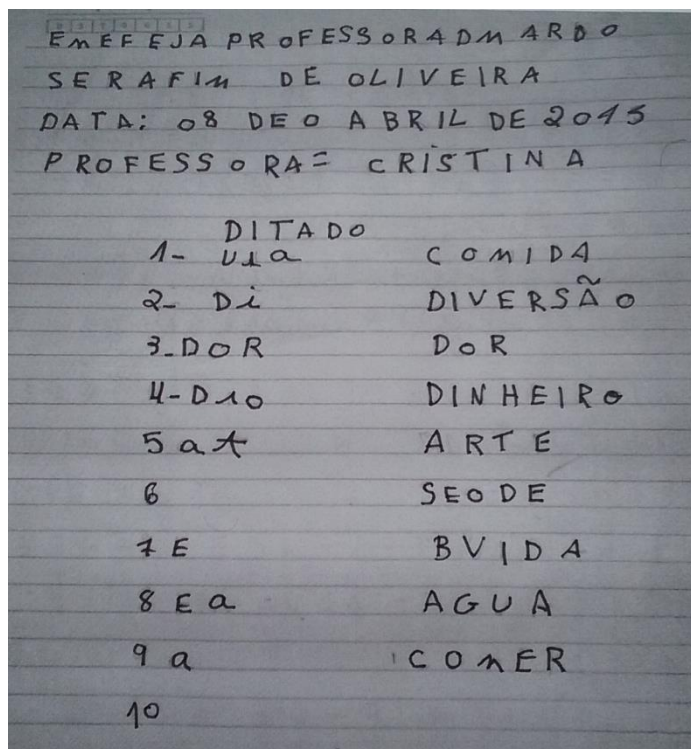 EMEF EJA PROFESSORA DMARDO
SERAFIM DE OLIVEIRA
DATA: 08 DEO ABRIL DE 2015
PROFESSORA= CRISTINA
DITADO
1- UIA COMIDA
2- Di DIVERSÃO
3-DOR DOR
4-D10 DINHEIRO
5 at ARTE
6 SEODE
7 E BVIDA
8 E a AGUA
9 a COMER
10